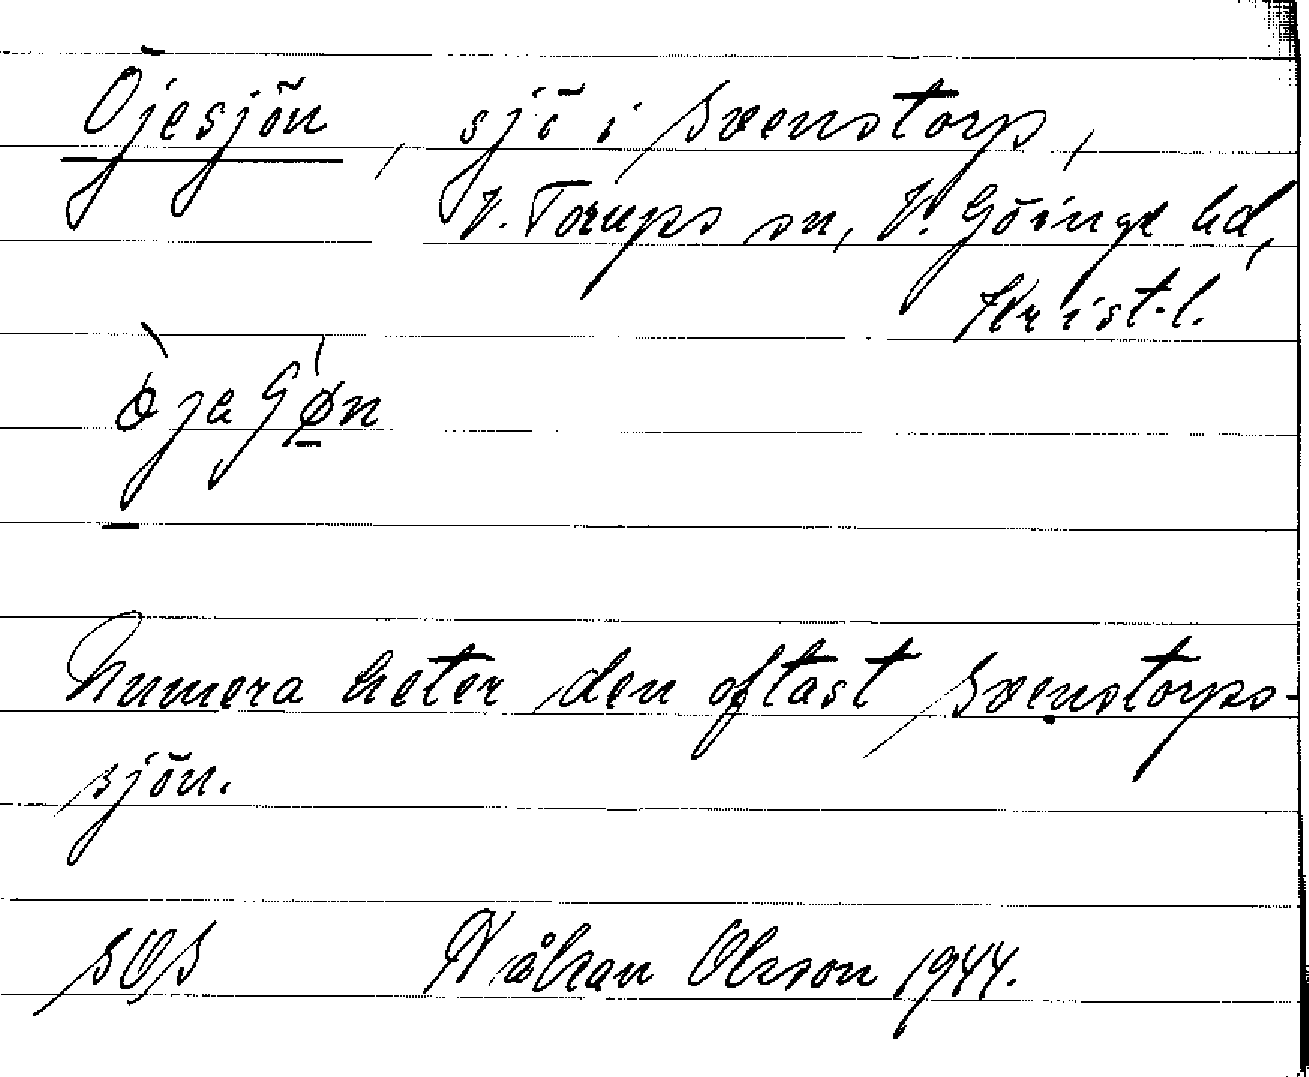 Öjesjön, sjö i Svenstorp,
V. Torups sn, V. Göinge hd,
Krist. l.
Numera heter den oftast Svenstorps-
sjön.
SOS Håkan Olsson 1944.